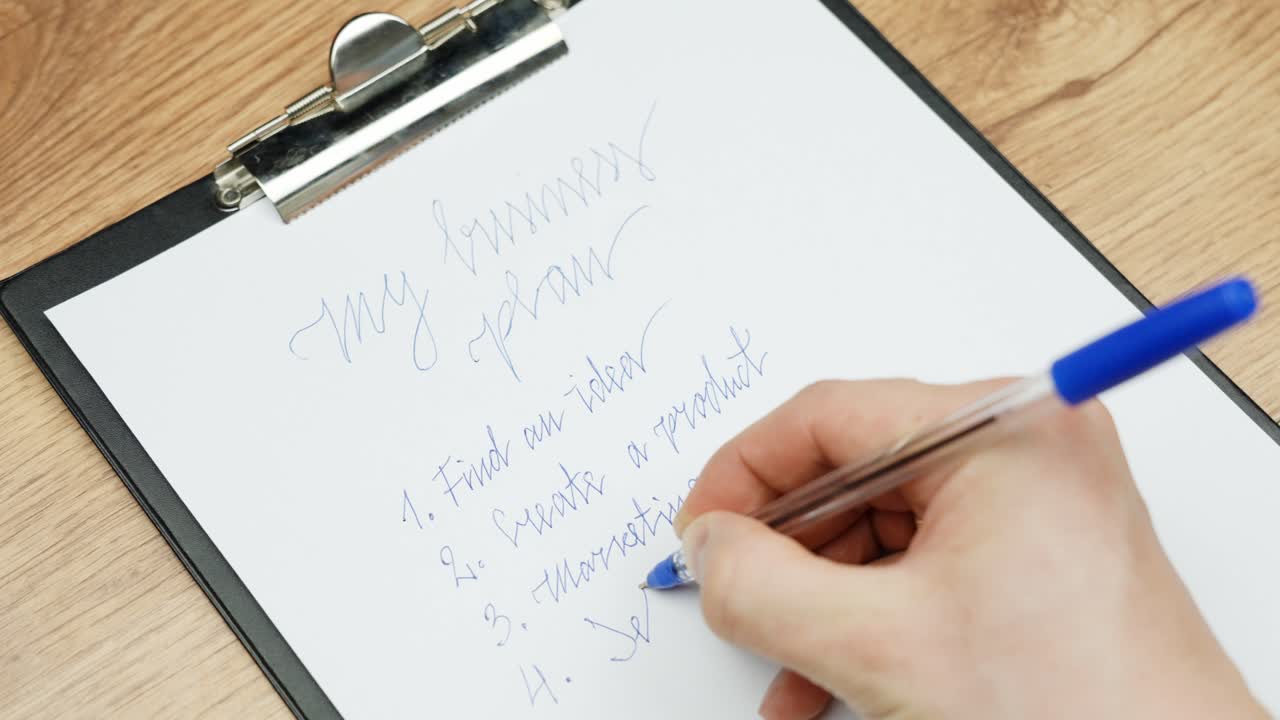 My business
plan
1. Find an idea
2. Create a product
3. Marketin
4. Se